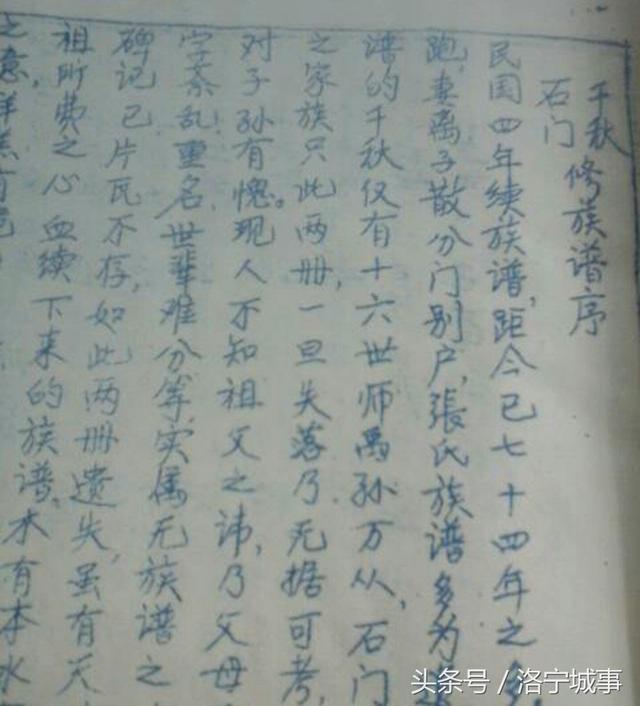 千秋
石门
修族谱序
民国四年续族谱，距今已七十四年之多，
跑，妻离子散分门别户，張氏族谱多为
谱的千秋仅有十六世师禹孙万从，石门
之家族只此两册，一旦失落乃无据可考，
对子孙有愧。现人不知祖父之讳，乃父母
字紊乱重名，世辈难分等，实属无族谱之
碑记已片瓦不存，如此两册遗失，虽有天
祖所费之心血续下来的族谱。木有本水
之意
头条号 / 洛宁城事